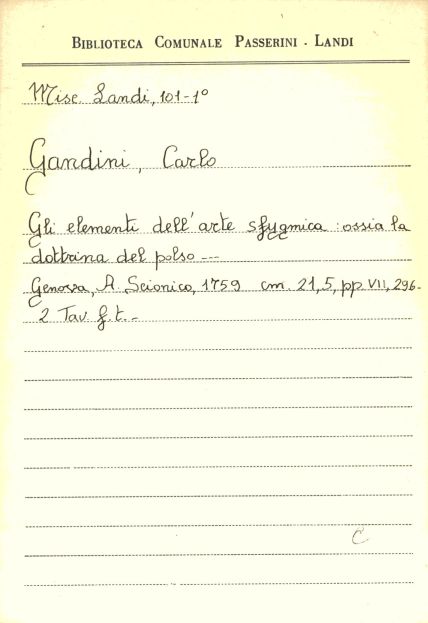 BIBLIOTECA COMUNALE PASSERINI - LANDI
Misc. Landi, 101-1°
Gandini, Carlo
Gli elementi dell'arte sfygmica: ossia la
dottrina del polso ---
Genova, A. Scionico, 1759 cm. 21,5, pp. VII, 296-
2 Tav. f.t. -
C